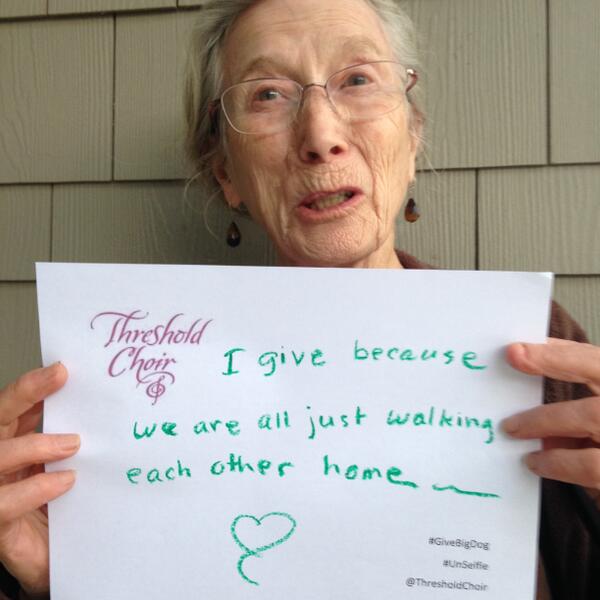 Threshold
Choir
I give because
we are all just walking
each other home
#GiveBigDog
#UnSelfie
@ThresholdChoir